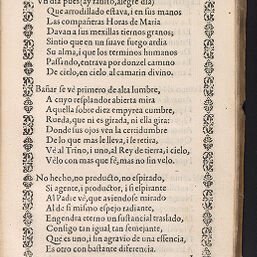 Vn dia pues (ay fausto, alegre dia)
Que arrodillado estava, i en sus manos
Las compañeras Horas de Maria
Davan a sus mexillas tiernos granos;
Sintio que en un suave fuego ardia
Su alma, i que los terminos humanos
Passando, entrava por dunzel camino
De cielo, en cielo al camarin divino.
Bañar se vè primero de alta lumbre,
A cuyo resplandor abierta mira
Aquella sobre diez empyrea cumbre,
Rueda, que ni es girada, ni ella gira:
Donde sus ojos ven la certidumbre
De lo que mas le lleva, i se retira,
Vè al Trino, i uno, al Rey de tierra, i cielo,
Vèlo con mas que fè, mas no sin velo.
No hecho, no producto, no espirado,
Si agente, i productor, i si espirante
Al Padre vè, que aviendose mirado
Al de si mismo espejo radiante,
Engendra eterno un sustancial traslado,
Consigo tan igual, tan semejante,
Que es uno, i sin agravio de una essencia,
Es otro con bastante diferencia.